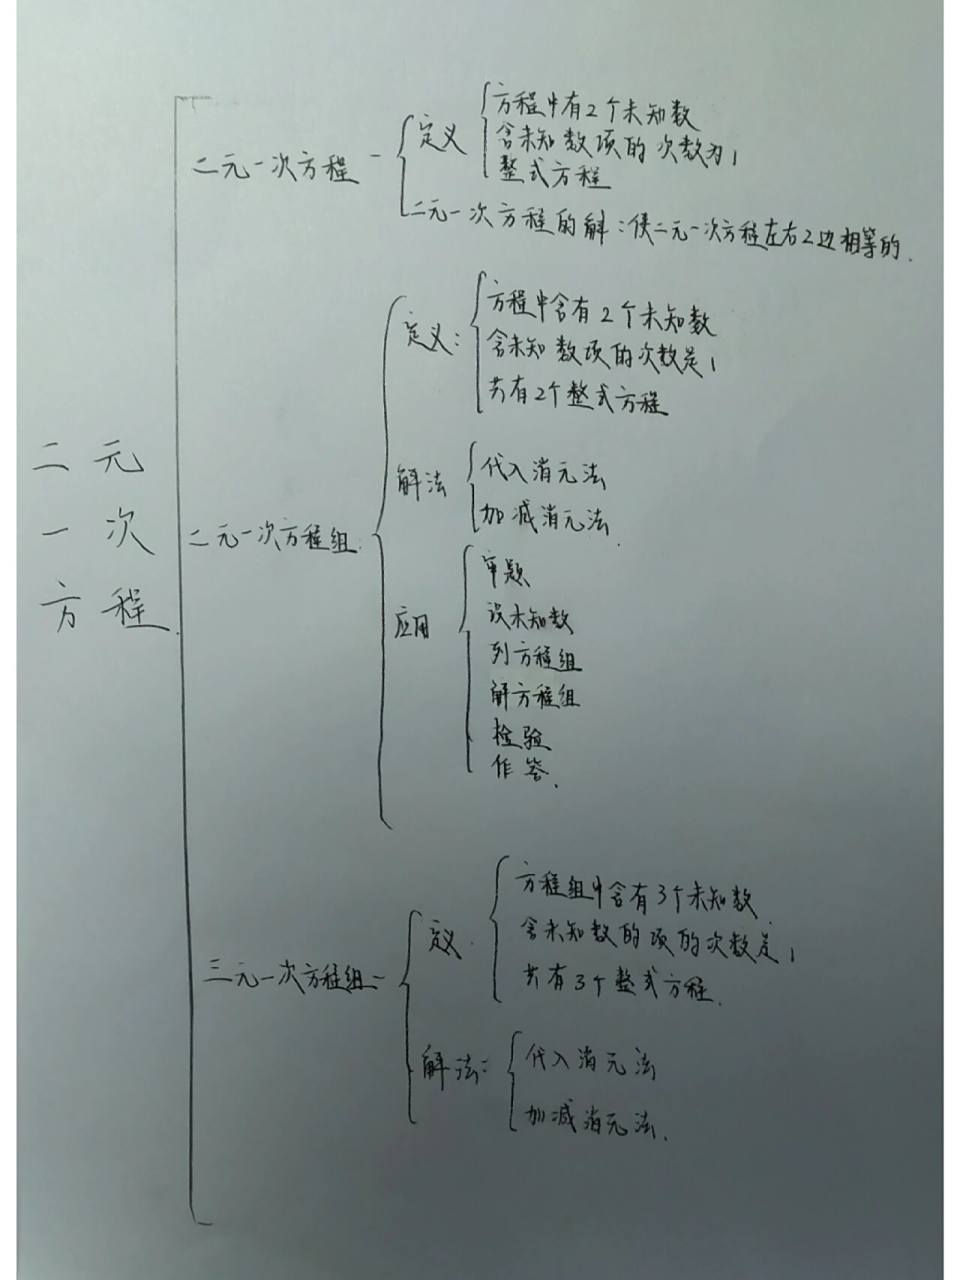 二元
一次
方程
二元一次方程
定义
方程中有2个未知数
含未知数项的次数为1
整式方程
二元一次方程的解:使二元一次方程左右2边相等的.
二元一次方程组.
定义:
方程中含有2个未知数
含未知数项的次数是1
共有2个整式方程
解法
代入消元法
加减消元法.
应用
审题
设未知数
列方程组
解方程组
检验
作答.
三元一次方程组
定义.
方程组中含有3个未知数.
含未知数的项的次数是1
共有3个整式方程.
解法:
代入消元法
加减消元法.